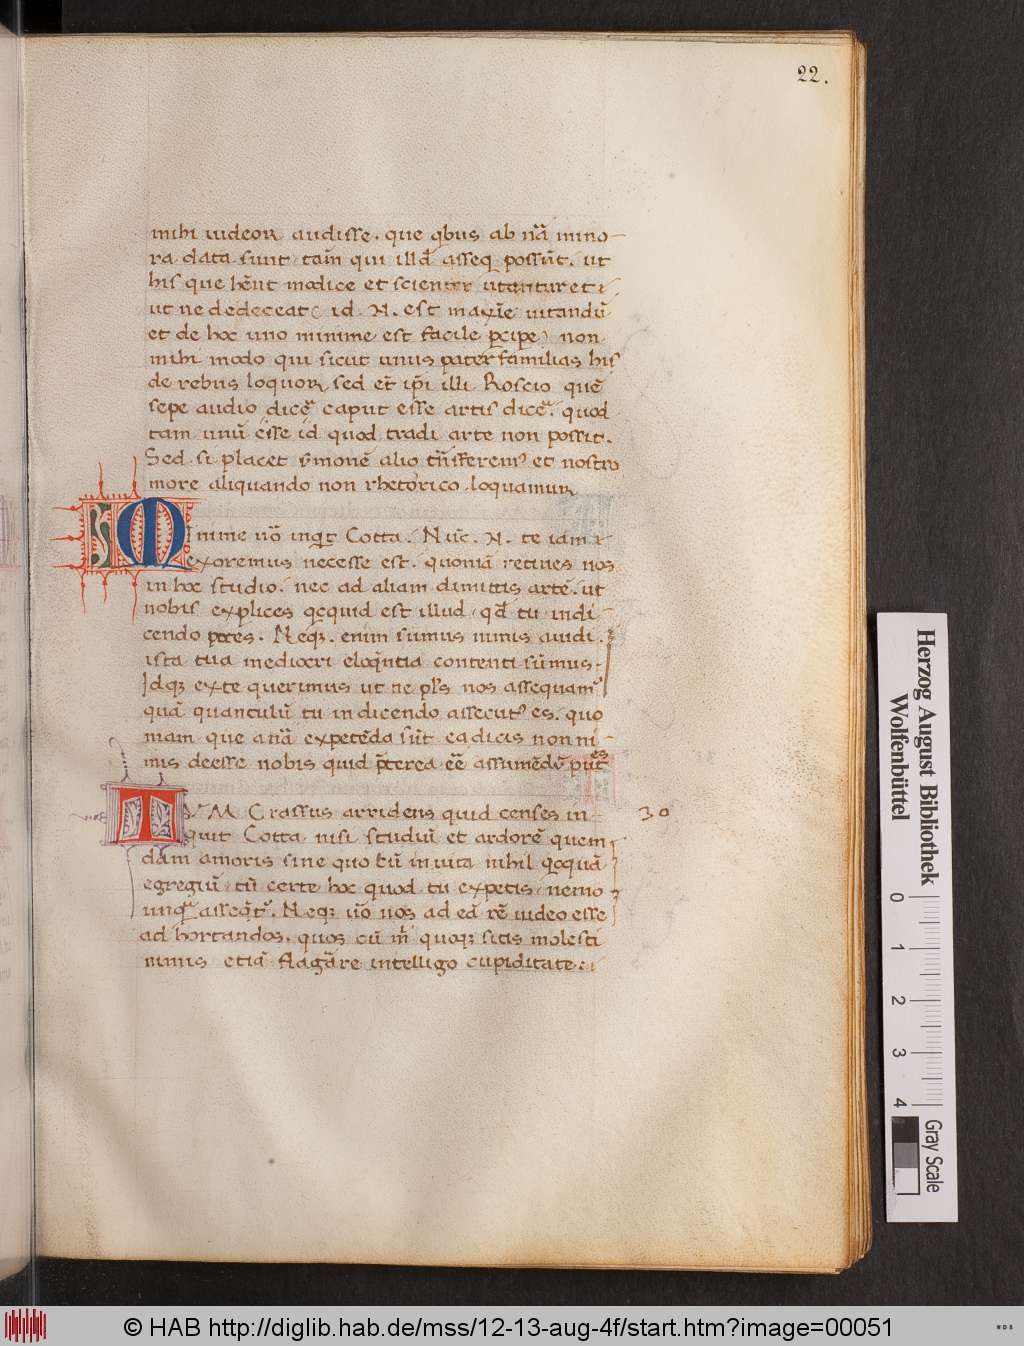 22.
mihi uideor audisse. que qbus ab nr̄a mino-
ra data sunt tam̄ qui illd̄ asseq possūt. ut
his que hn̄t modice et scienter utantur et i
ut ne dedeceat id .N. est maxīe uitandū
et de hoc uno minime est facile p̄cipe non
mihi modo qui sicut unus paterfamilias his
de rebus loquor sed et̄ ip̄i illi Roscio quē
sepe audio dicē caput esse artis dicē. quod
tam unū esse id quod tradi arte non possit.
Sed si placet s̄monē alio t̄nsferem9 et nostro
more aliquando non rhetorico loquamur
Minime uō inqt Cotta. Nūc .N. te iam
exoremus necesse est. quoniā retines nos
in hoc studio. nec ad aliam dimittis artē. ut
nobis explices qcquid est illud qd̄ tu in di
cendo potes. Neqꝫ enim sumus nimis auidi.
ista tua mediocri eloqntia contenti sumus.
Idqꝫ ex te querimus ut ne pl9 nos assequam9
quā quantulū tu in dicendo assecut9 es. quo
niam que a nā expetēda sūt ea dicis non ni-
mis deesse nobis quid p̄terea eē assumēdū putes
TVM Crassus arridens quid censes in-
quit Cotta nisi studiū et ardorē quem
dam amoris sine quo cū in uita nihil qcquā
egregiū tū certe hoc quod tu expetis nemo
unqua asseqt. Neqꝫ uō nos ad eā rē uideo esse
ad hortandos. quos cū m̄ quoqꝫ sitis molesti
nimis etiā flagare intelligo cupiditate.
30
Herzog August Bibliothek
Wolfenbüttel
0 1 2 3 4
Gray Scale
© HAB http://diglib.hab.de/mss/12-13-aug-4f/start.htm?image=00051